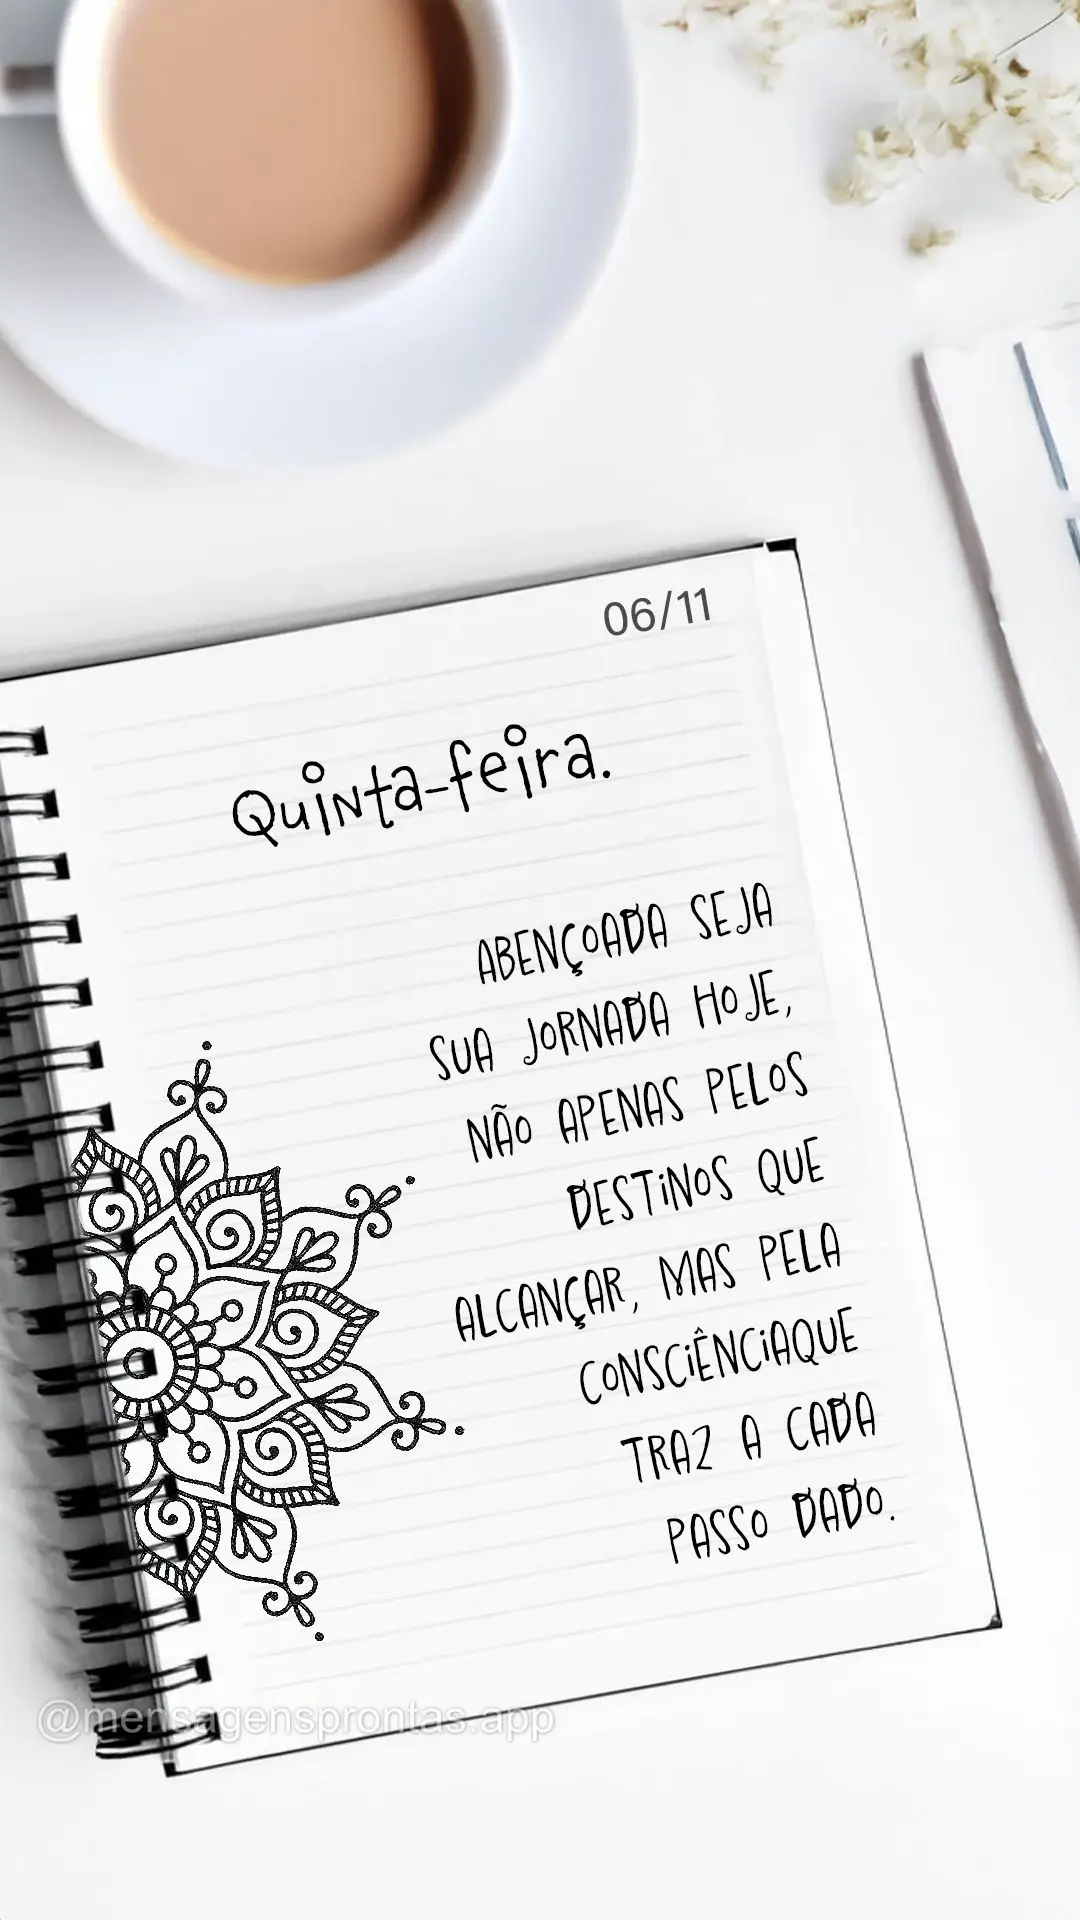 06/11
Quinta-feira.
ABENÇOADA SEJA
SUA JORNADA HOJE,
NÃO APENAS PELOS
DESTINOS QUE
ALCANÇAR, MAS PELA
CONSCIÊNCIAQUE
TRAZ A CADA
PASSO DADO.
@mensagensprontas.app